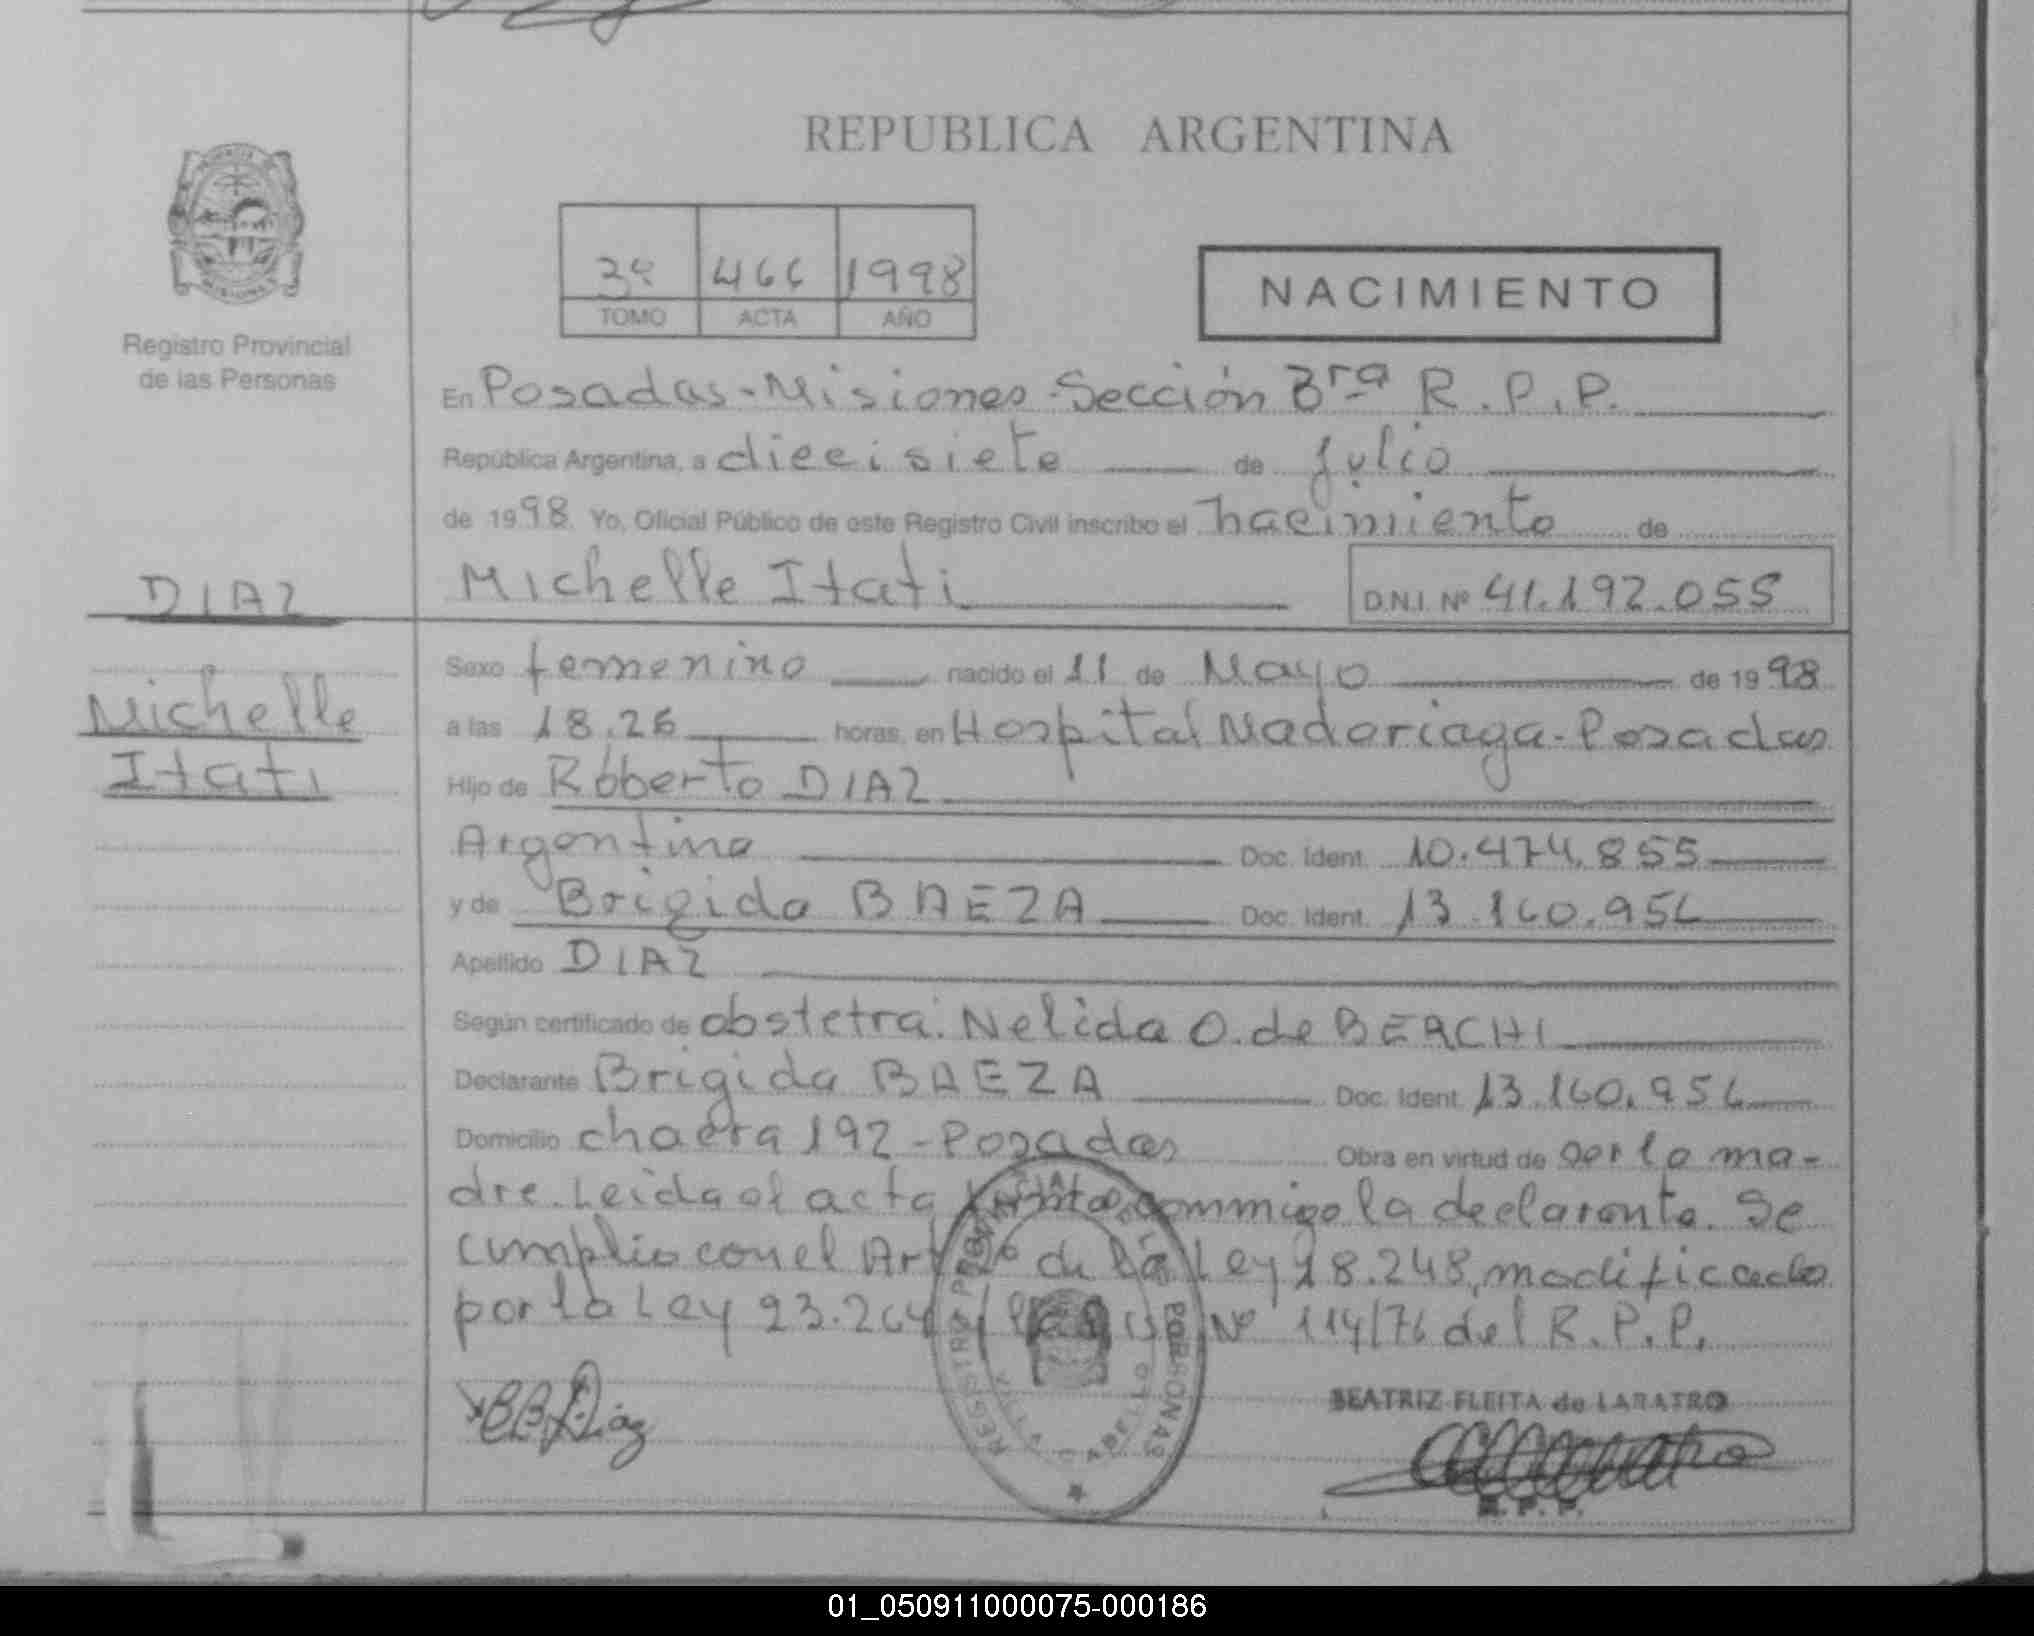 REPUBLICA ARGENTINA
1998
TOMO ACTA AÑO
NACIMIENTO
Registro Provincial
de las Personas
En Posadas-Misiones-Sección 3ra R.P.P.
República Argentina, a diecisiete de julio
de 1998 Yo, Oficial Público de este Registro Civil inscribo el nacimiento de
DIAZ
Michelle Itati
D.N.I. Nº 41.192.055
Michelle
Itati
Sexo femenino nacido el 11 de Mayo de 1998
a las 18.26 horas, en Hospital Madariaga-Posadas
Hijo de Roberto DIAZ
Argentino Doc. Ident. 10.474.855
y de Brigida BAEZA Doc. Ident. 13.160.956
Apellido DIAZ
Según certificado de obstetra: Nelida O. de BERCHI
Declarante Brigida BAEZA Doc. Ident. 13.160.956
Domicilio chacra 192-Posadas Obra en virtud de ser la ma-
dre. Leida el acta conmigo la declarante. Se
cumplio con el Art de la Ley 18.248, modificada
por la Ley 23.264 y Nº 114/76 del R.P.P.
Diaz
BEATRIZ FLEITA de LABATRO
R.P.P.
01_050911000075-000186